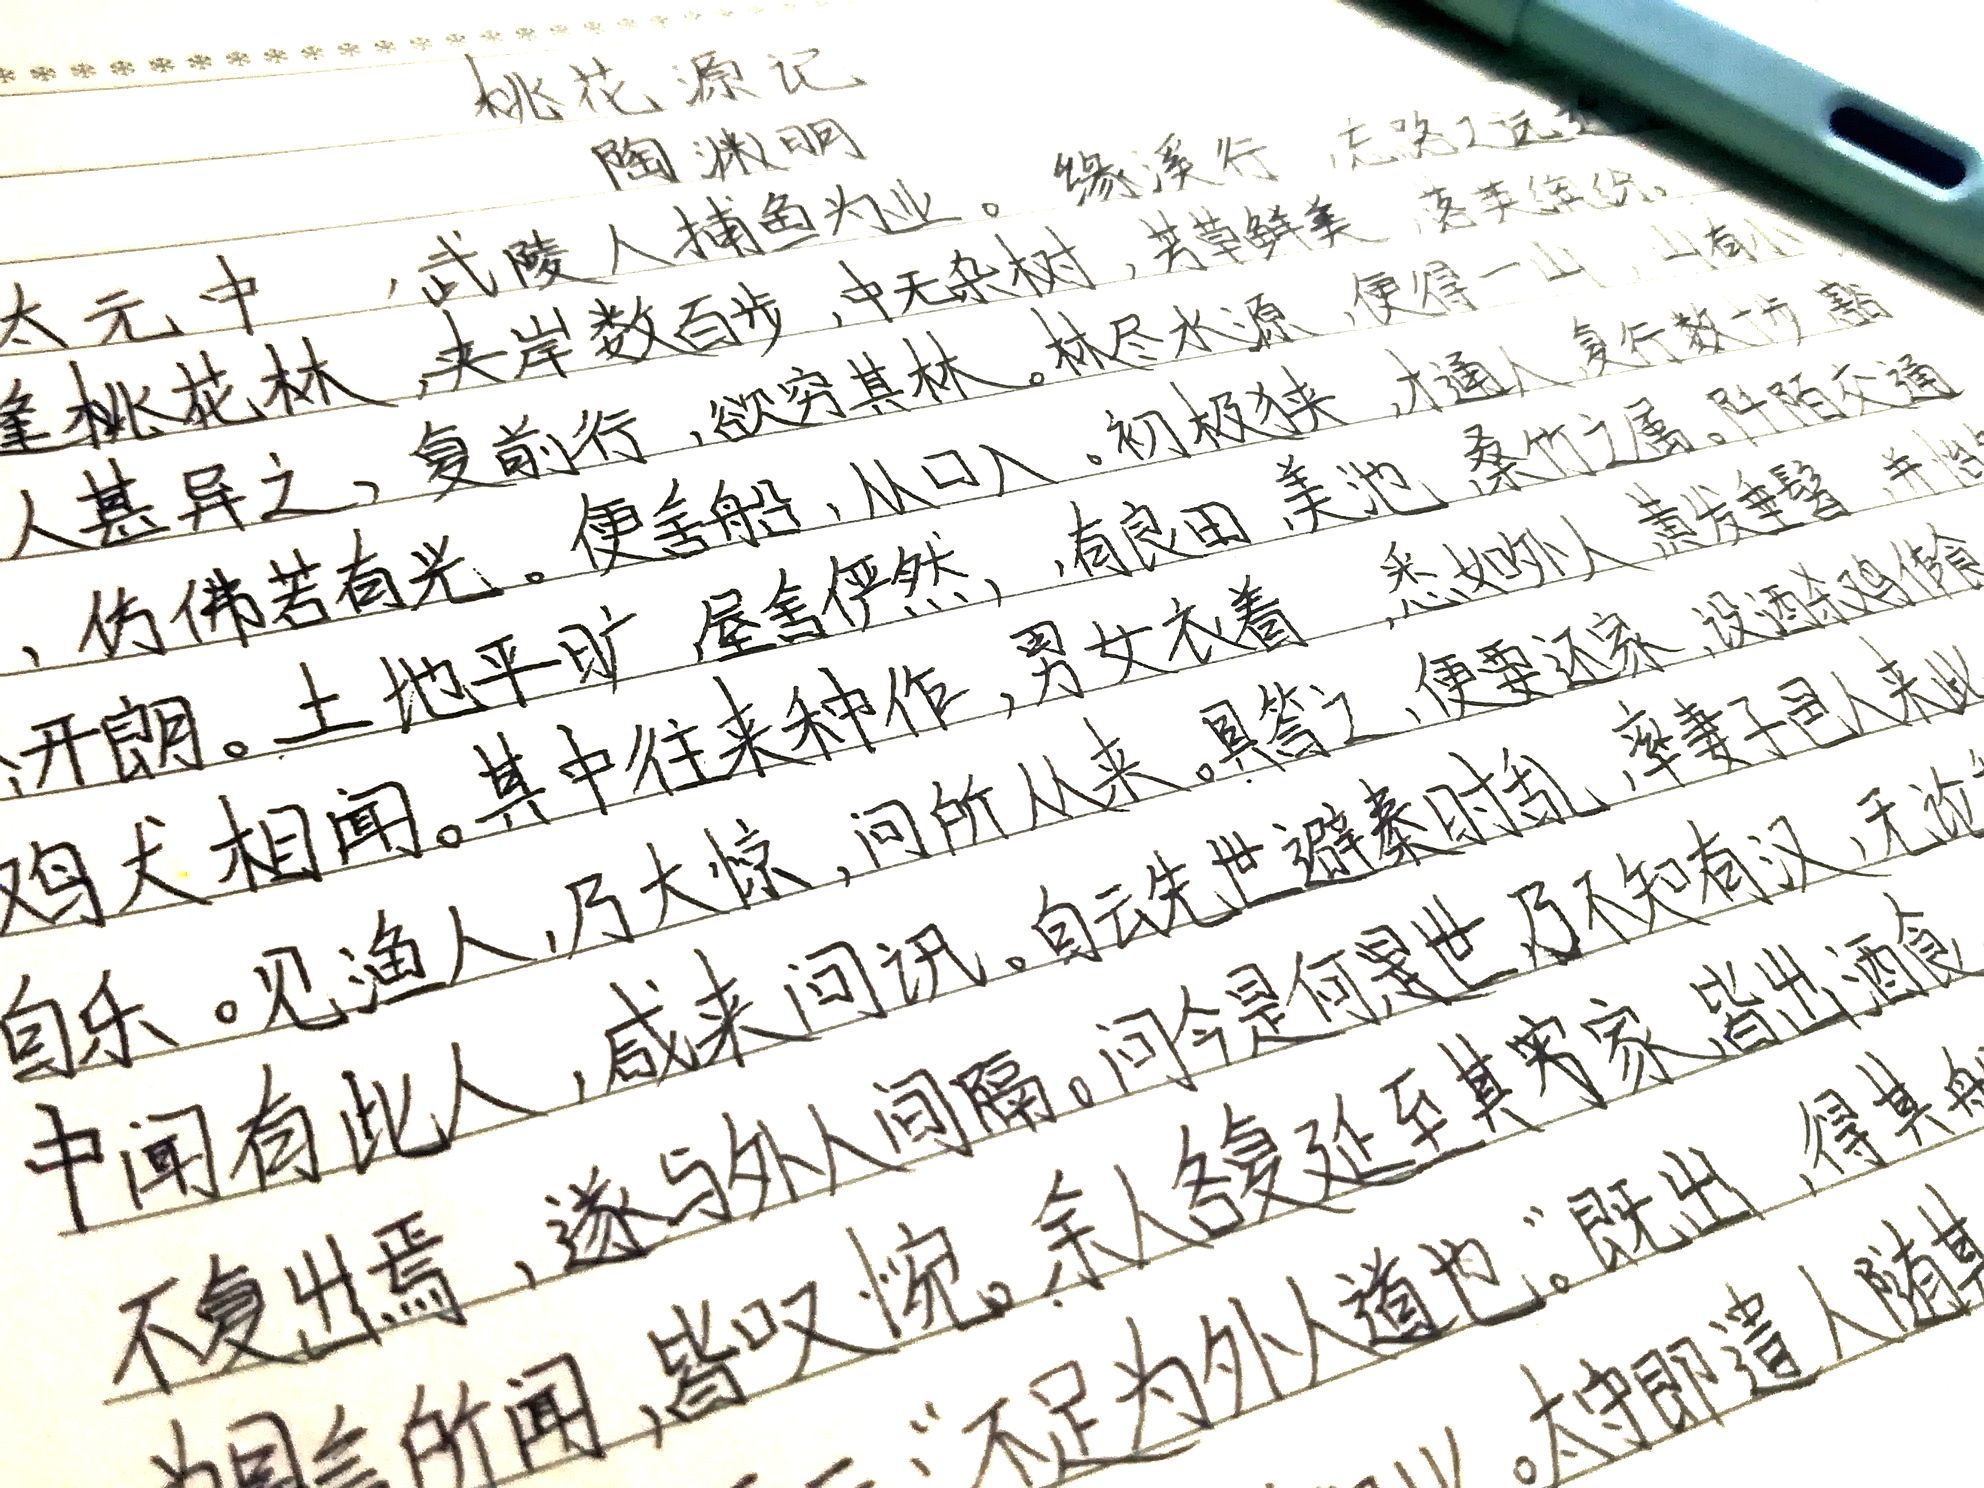 桃花源记
陶渊明
太元中,武陵人捕鱼为业。缘溪行,忘路之远
逢桃花林,夹岸数百步,中无杂树,芳草鲜美,落英缤纷,
人甚异之、复前行,欲穷其林。林尽水源,便得一山,山有小
,仿佛若有光。便舍船,从口入。初极狭,才通人,复行数十步,豁
开朗。土地平旷,屋舍俨然,有良田,美池,桑竹之属。阡陌交通
鸡犬相闻。其中往来种作,男女衣着,悉如外人,黄发垂髫,并怡
自乐。见渔人,乃大惊,问所从来。具答之,便要还家,设酒杀鸡作食
中闻有此人,咸来问讯。自云先世避秦时乱,率妻子邑人来此
不复出焉,遂与外人间隔。问今是何是世,乃不知有汉,无论
为具言所闻,皆叹惋。余人各复延至其家,皆出酒食
“不足为外人道也”。既出,得其船
业。太守即遣人随其